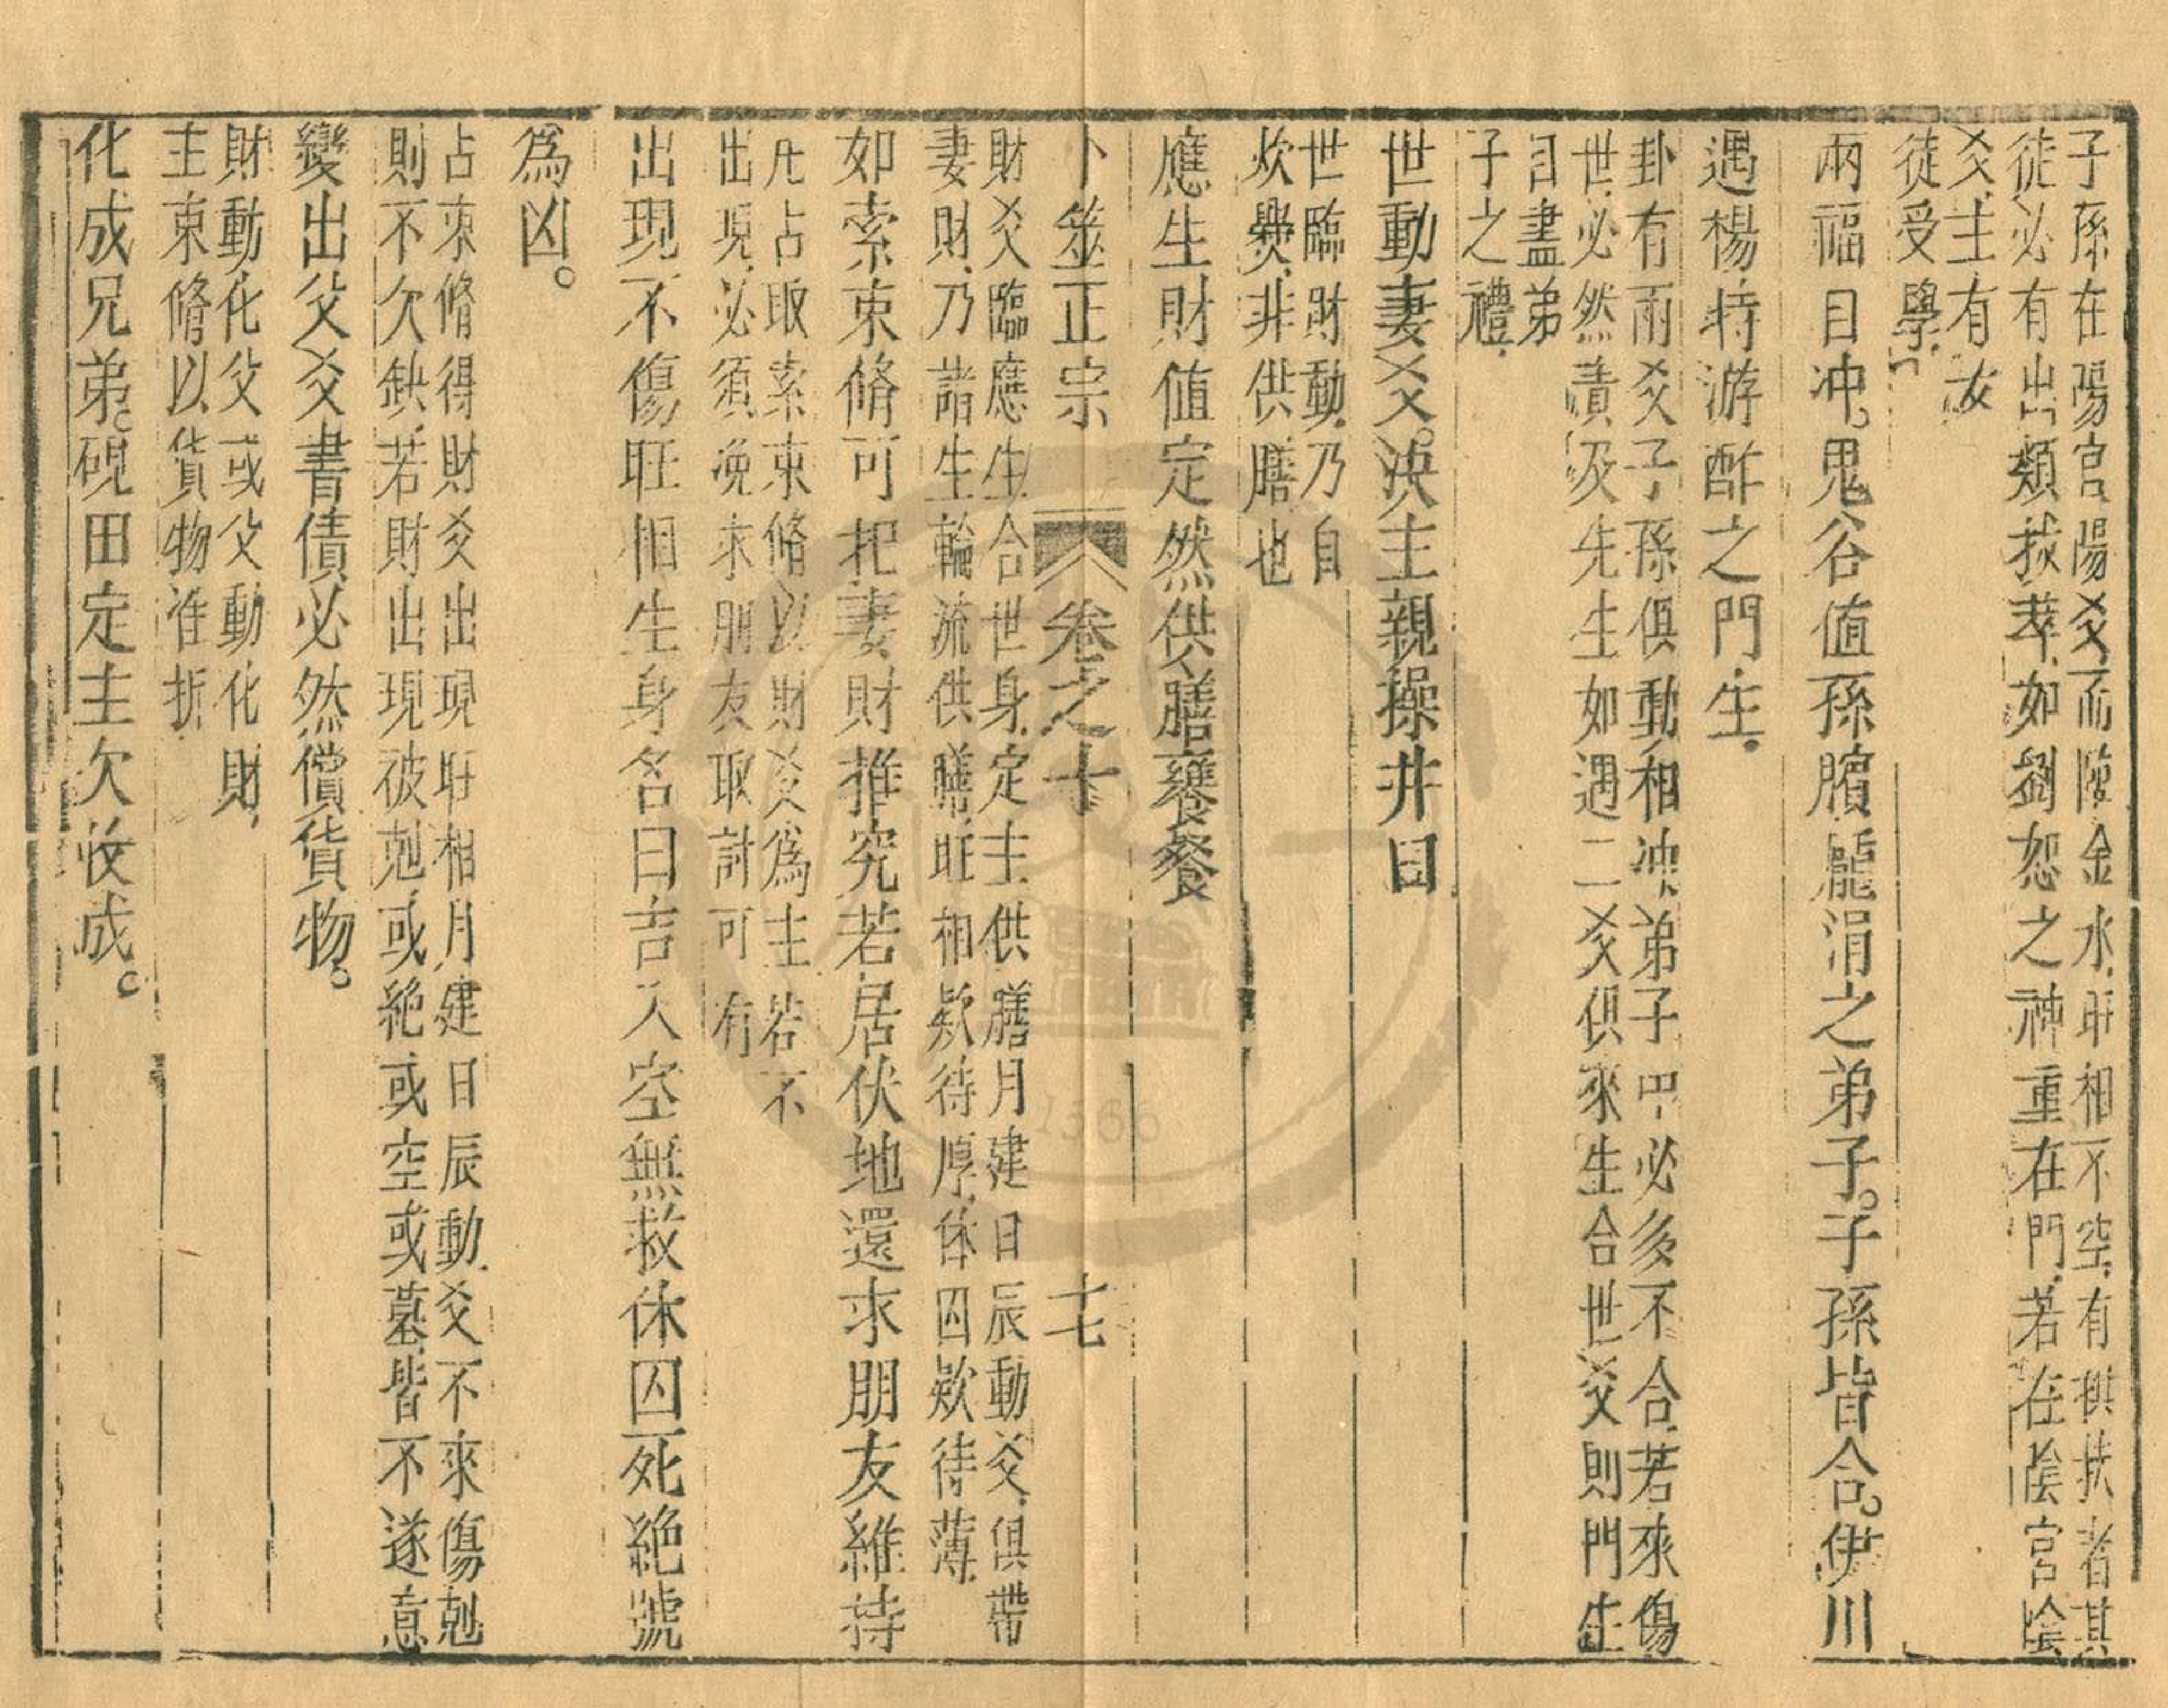 子孫在陽宮陽爻而臨金水旺相不空有拱扶者其
徒必有出類拔萃如劉恕之神重在門若在陰宮陰
爻主有女
徒受學
兩福日冲。鬼谷值孫臏龎涓之弟子。子孫皆合。伊川
遇楊時游酢之門生
卦有兩爻子孫俱動相冲弟子中必多不合若來傷
世必然責及先生如遇二爻俱來生合世爻則門生
自盡弟
子之禮
世動妻爻。決主親操井臼
世臨財動乃自
炊爨非供膳也
應生財值定然供膳饔餐
卜筮正宗 卷之十 十七
財爻臨應生合世身定主供膳月建日辰動爻俱帶
妻財乃諸生輪流供膳旺相欵待厚休囚欵待薄
如索束脩可把妻財推究若居伏地還求朋友維持
凡占取索束脩以財爻爲主若不
出現必須浼求朋友取討可有
出現不傷旺相生身名曰吉入空無救休囚死絕號
爲凶。
占束脩得財爻出現旺相月建日辰動爻不來傷剋
則不欠缺若財出現被剋或絕或空或墓皆不遂意
變出父爻書債必然償貨物。
財動化父或父動化財
主束脩以貨物准折
化成兄弟。硯田定主欠收成。